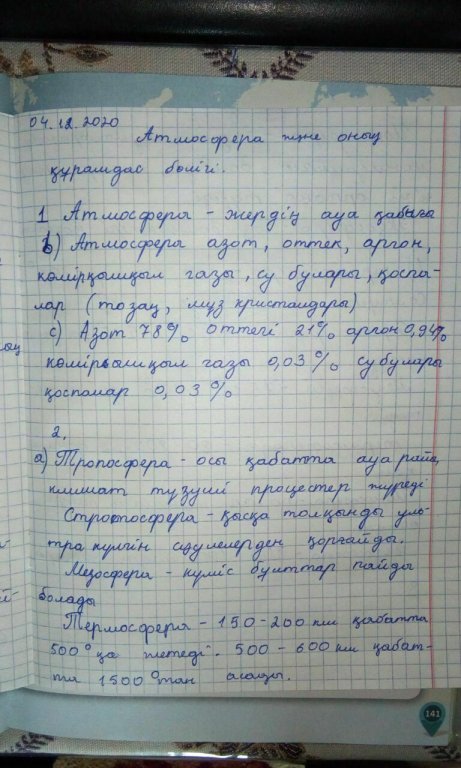 04.12.2020
Атмосфера және оның
құрамдас бөлігі.
1 Атмосфера - жердің ауа қабығы
b) Атмосфера азот, оттек, аргон,
көмірқышқыл газы, су булары, қоспа-
лар (тозаң, мұз кристалдары)
с) Азот 78% оттегі 21% аргон 0,94%
көмірқышқыл газы 0,03% су булары
қоспалар 0,03%
2.
а) Тропосфера - осы қабатта ауа райы,
климат түзуші процестер жүреді
Стротосфера - қысқа толқынды уль-
тра күлгін сәулелерден қорғайды.
Мезосфера - күміс бұлттар пайда
болады
Термосфера - 150-200 км қабатта
500° қа жетеді. 500 - 600 км қабат-
та 1500° тан асады.
141